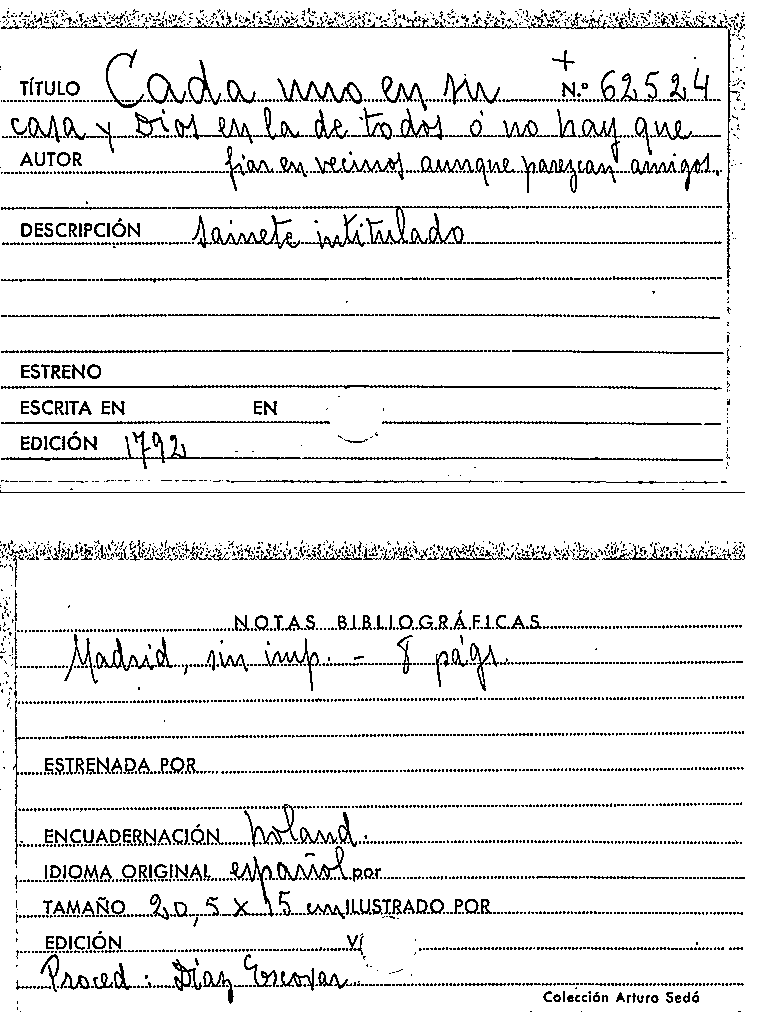 TÍTULO Cada uno en su N.º 62524
casa y Dios en la de todos ó no hay que
AUTOR fiar en vecinos aunque parezcan amigos.
DESCRIPCIÓN sainete intitulado
ESTRENO
ESCRITA EN EN
EDICIÓN 1792
NOTAS BIBLIOGRÁFICAS
Madrid, sin imp. - 8 págs.
ESTRENADA POR
ENCUADERNACIÓN holand.
IDIOMA ORIGINAL español por
TAMAÑO 20,5 X 15 cm ILUSTRADO POR
EDICIÓN
Proced: Díaz Escovar
Colección Arturo Sedó